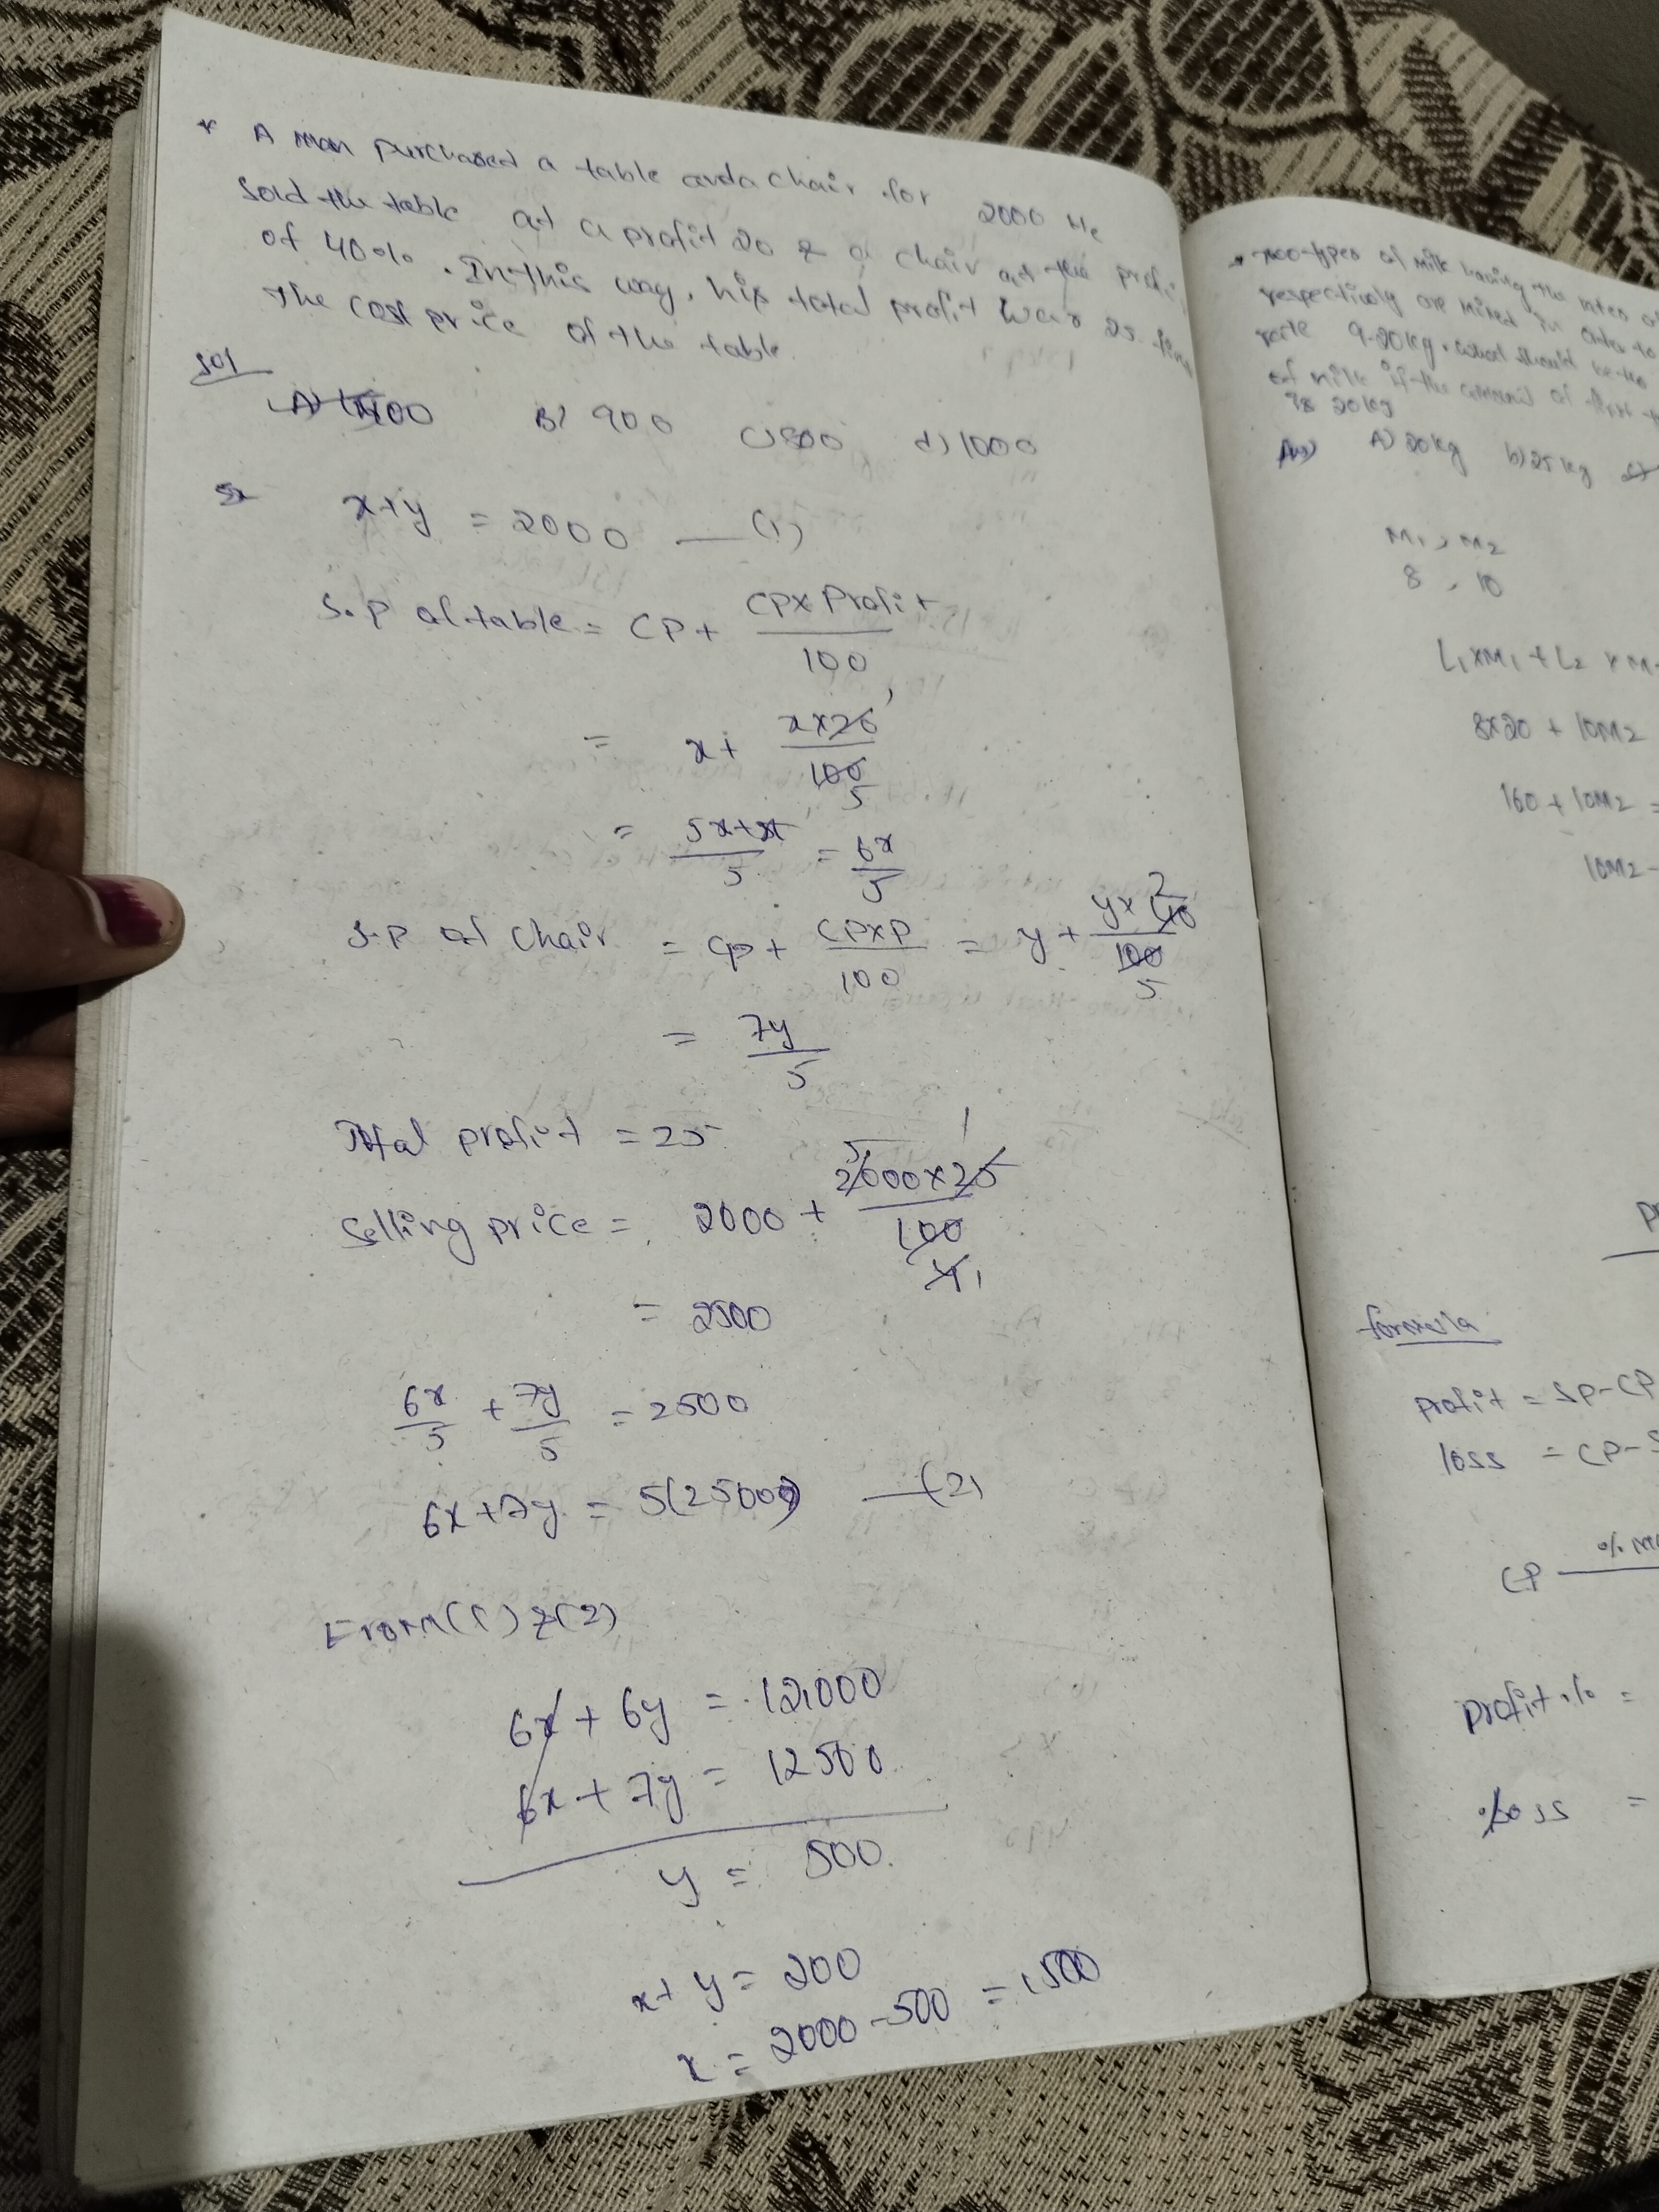 * A man purchased a table and a chair for 2000 He
sold the table at a profit 20 & a chair at the profi
of 40%. In this way, his total profit was 25. fin
the cost price of the table.
Sol
B) 900 C) 800 d) 1000
x+y = 2000 —(1)
S.P of table = CP + CP×Profit / 100
= x + x×20 / 100 1 5
= 5x+x / 5 = 6x / 5
S.P of Chair = CP + CP×P / 100 = y + y×40 / 100 2 5
= 7y / 5
Total profit = 25
Selling price = 2000 + 2000×25 / 100
= 2500
6x/5 + 7y/5 = 2500
6x+7y = 5(2500) —(2)
From (1) & (2)
6x + 6y = 12000
6x + 7y = 12500
y = 500.
x+y = 200
x = 2000-500 = 1500
* Two types of milk having the rates o
respectively are mixed in order to
rate 9.20kg. what should be the
of milk if the amount of first
is 20kg
Ans) A) 20kg b) 25kg
M1, M2
8, 10
L1×M1 + L2 × M
8×20 + 10M2
160 + 10M2 =
10M2 -
formula
profit = SP-CP
loss = CP-S
CP
profit % =
%loss =